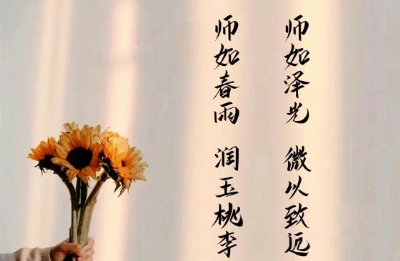 师如泽光 微以致远
师如春雨 润玉桃李